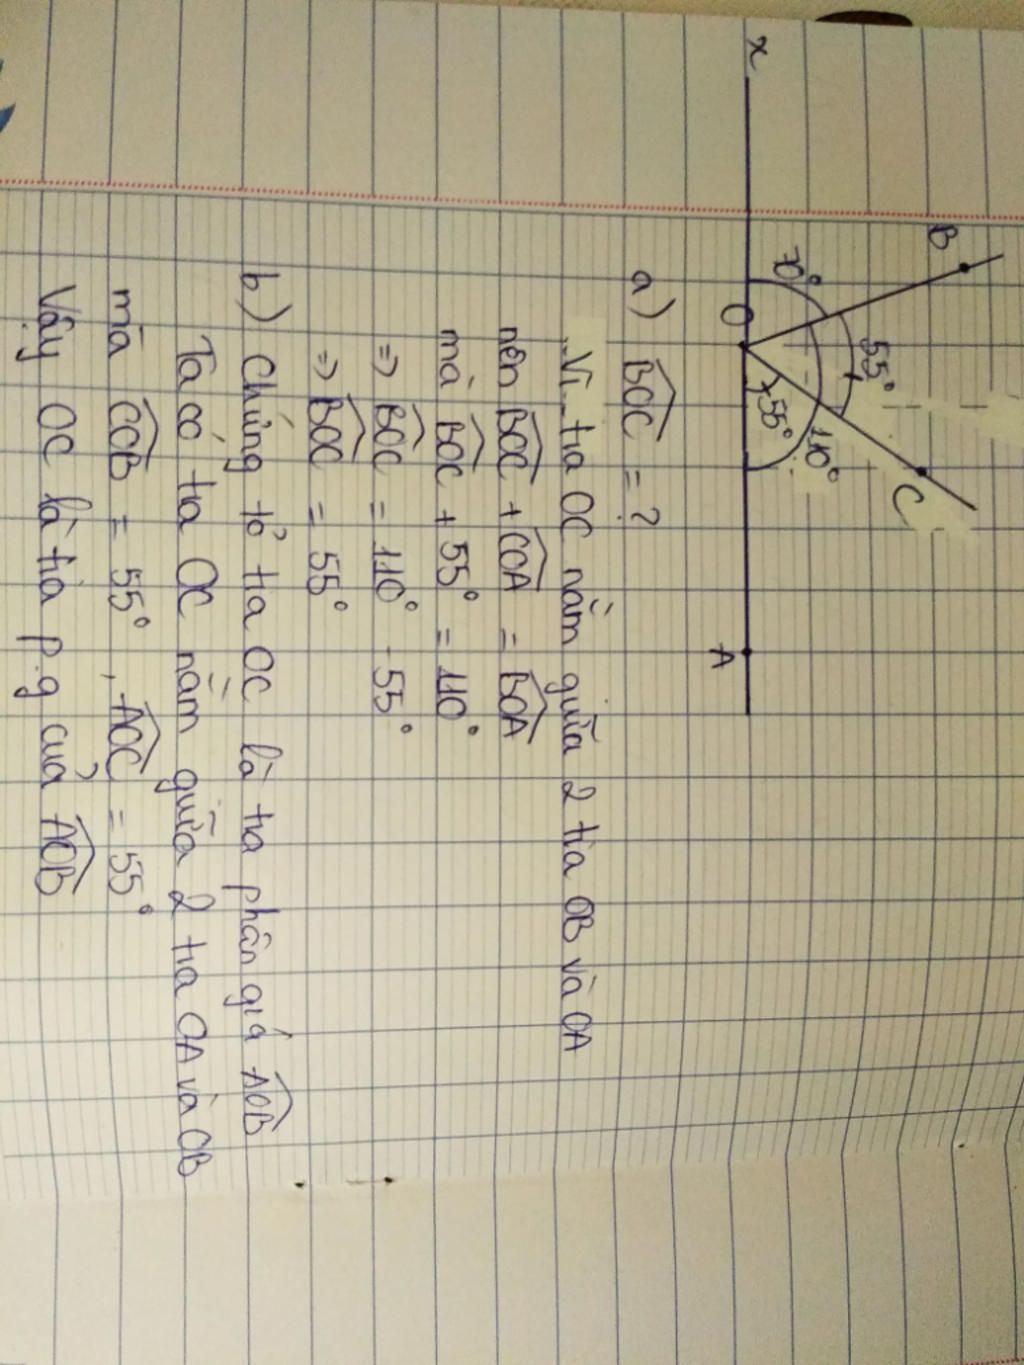 x
B
70°
55°
O
55°
110°
C
A
a) BOC = ?
Vì tia OC nằm giữa 2 tia OB và OA
nên BOC + COA = BOA
mà BOC + 55° = 110°
=> BOC = 110° - 55°
=> BOC = 55°
b) Chứng tỏ tia OC là tia phân giá AOB
Ta có tia OC nằm giữa 2 tia OA và OB
mà COB = 55°, AOC = 55°
Vậy OC là tia p.g của AOB